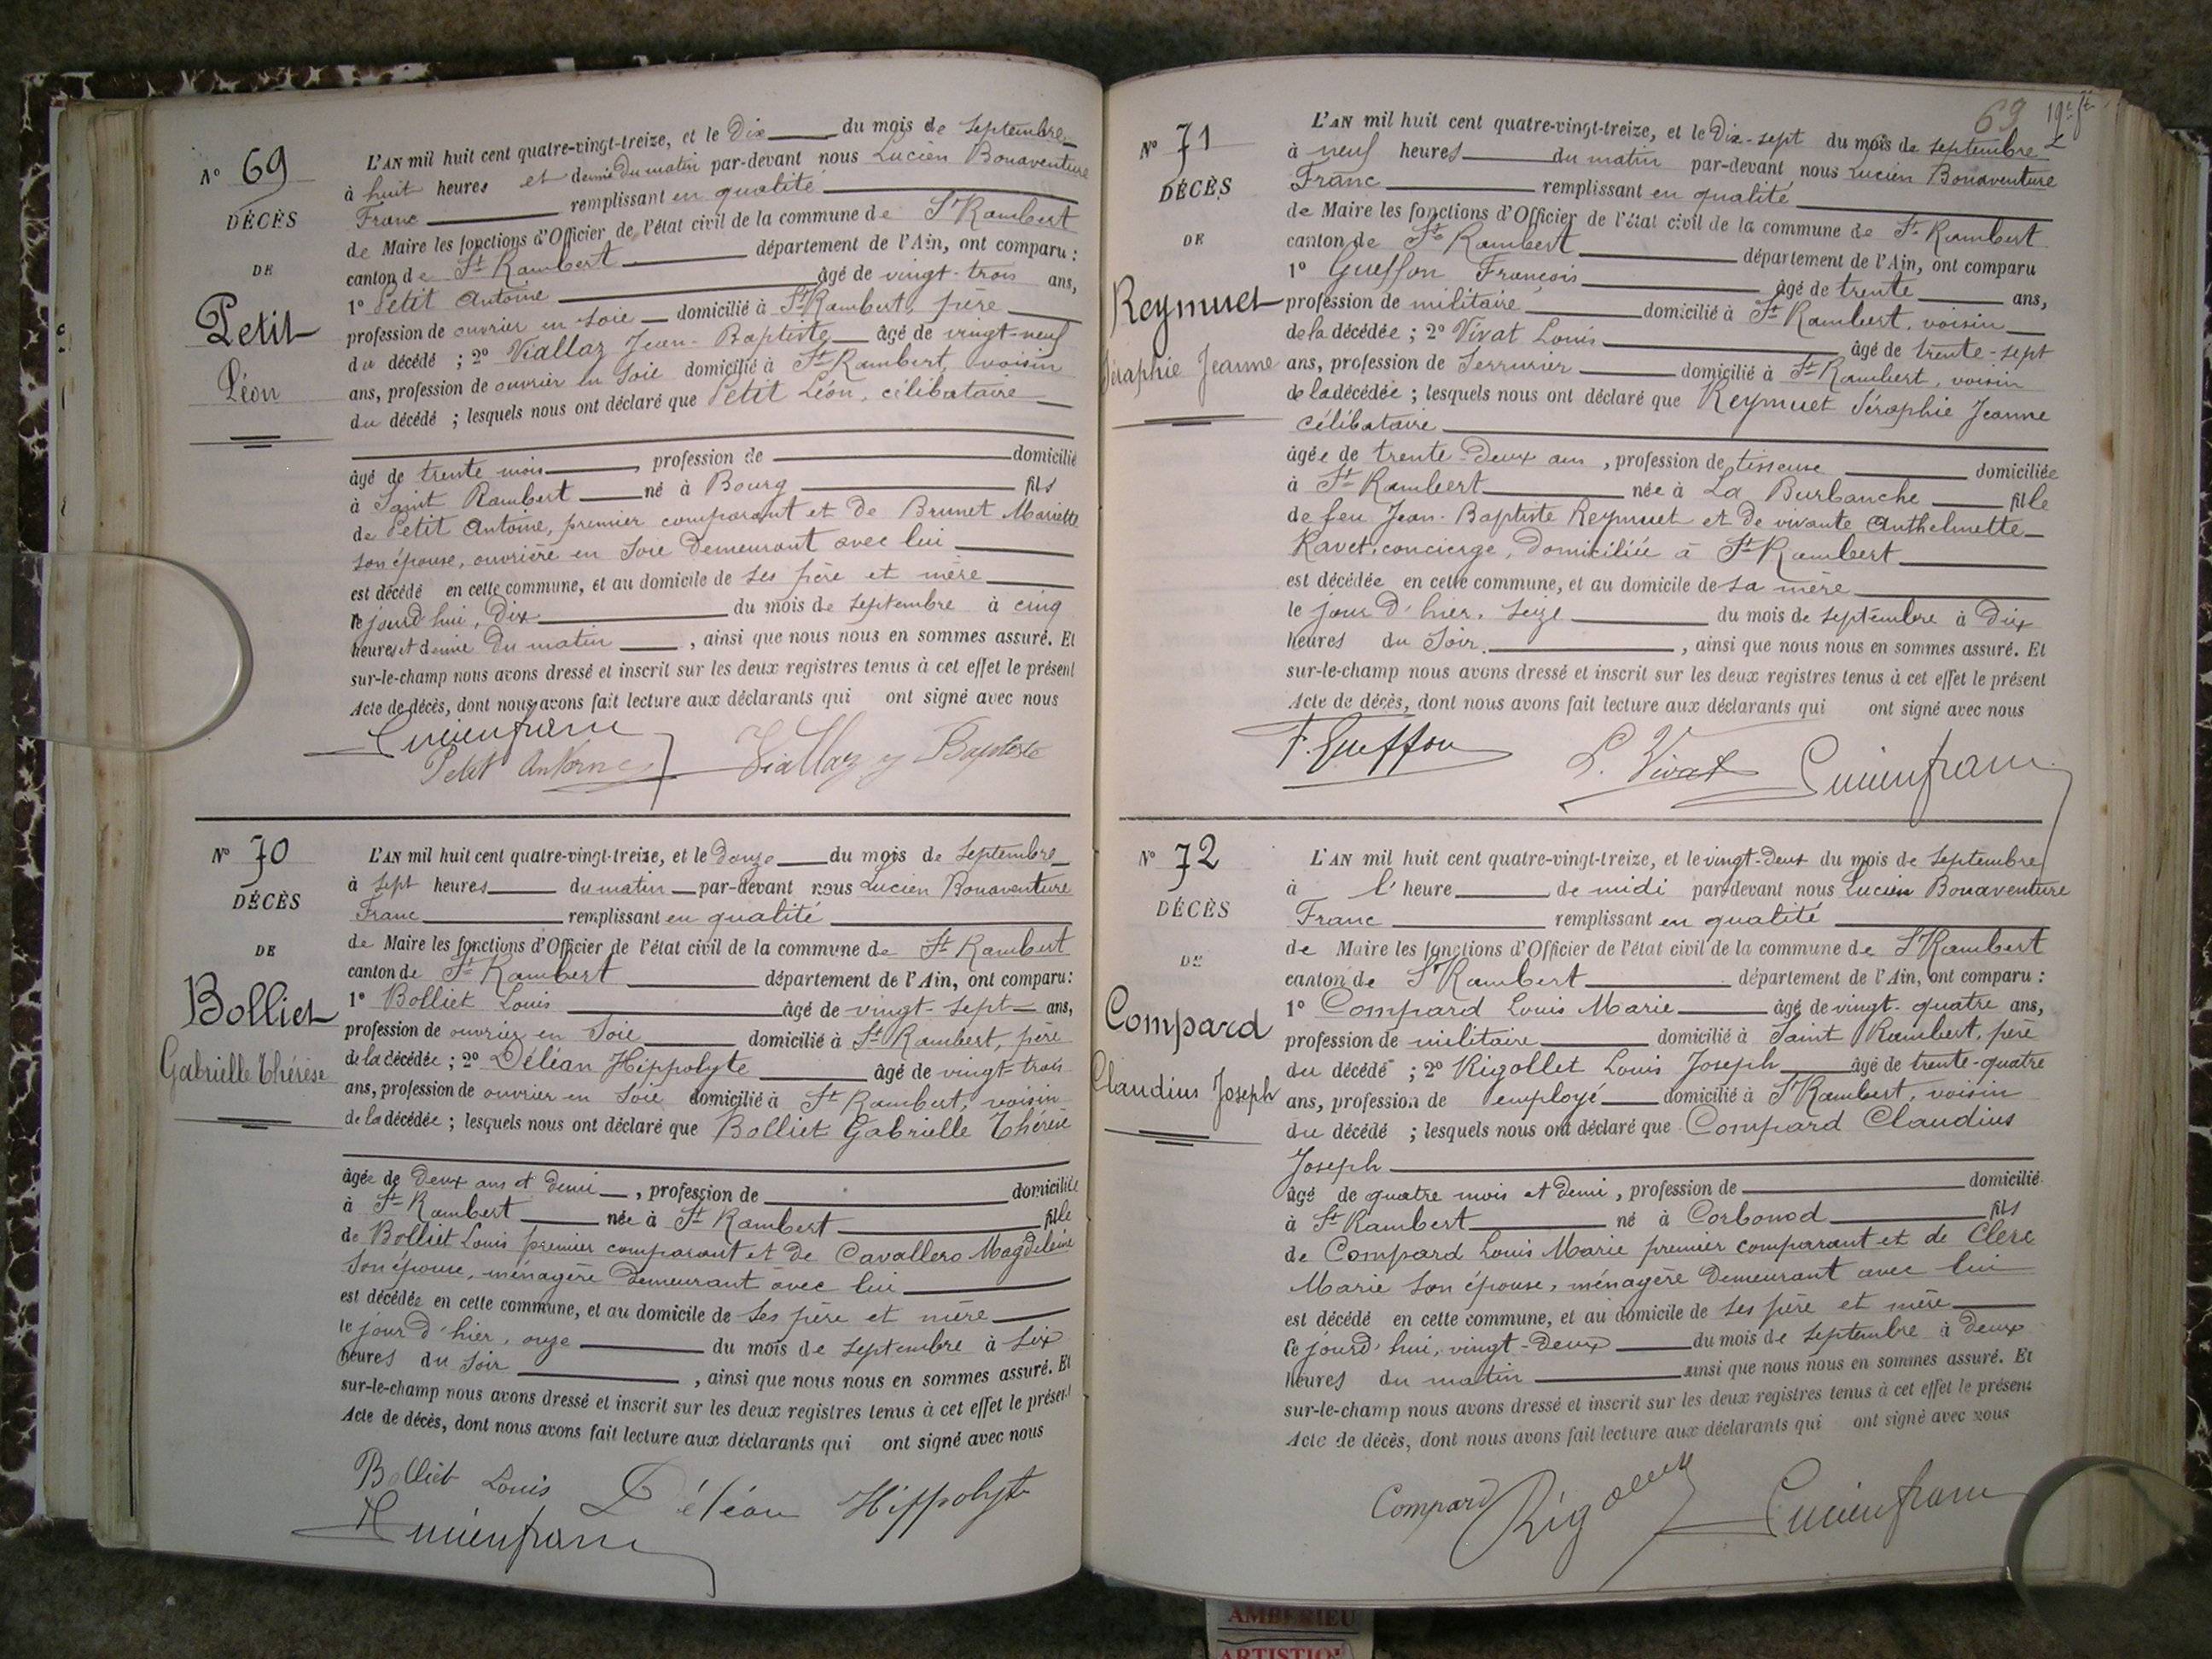 N° 69
DÉCÈS
DE
Petit
Léon
L'AN mil huit cent quatre-vingt-treize, et le Dix du mois de Septembre
à huit heures et demie du matin par-devant nous Lucien Bonaventure
Franc remplissant en qualité
de Maire les fonctions d'Officier de l'état civil de la commune de St Rambert
canton de St Rambert département de l'Ain, ont comparu :
1° Petit Antoine âgé de vingt-trois ans,
profession de ouvrier en soie domicilié à St Rambert, père
du décédé ; 2° Viallaz Jean-Baptiste âgé de vingt-neuf
ans, profession de ouvrier en soie domicilié à St Rambert, voisin
du décédé ; lesquels nous ont déclaré que Petit Léon, célibataire
âgé de trente mois, profession de domicilié
à Saint Rambert né à Bourg fils
de Petit Antoine, premier comparant et de Brunet Mariette
son épouse, ouvrière en soie demeurant avec lui
est décédé en cette commune, et au domicile de ses père et mère
le jourd'hui, dix du mois de septembre à cinq
heures et demie du matin, ainsi que nous nous en sommes assuré. Et
sur-le-champ nous avons dressé et inscrit sur les deux registres tenus à cet effet le présent
Acte de décès, dont nous avons fait lecture aux déclarants qui ont signé avec nous
Lucien franc
Petit Antoine Viallaz Baptiste
N° 70
DÉCÈS
DE
Bolliet
Gabrielle Thérèse
L'AN mil huit cent quatre-vingt-treize, et le douze du mois de Septembre
à sept heures du matin par-devant nous Lucien Bonaventure
Franc remplissant en qualité
de Maire les fonctions d'Officier de l'état civil de la commune de St Rambert
canton de St Rambert département de l'Ain, ont comparu :
1° Bolliet Louis âgé de vingt-sept ans,
profession de ouvrier en soie domicilié à St Rambert, père
de la décédée ; 2° Déléan Hippolyte âgé de vingt-trois
ans, profession de ouvrier en soie domicilié à St Rambert, voisin
de la décédée ; lesquels nous ont déclaré que Bolliet Gabrielle Thérèse
âgée de deux ans et demi, profession de domiciliée
à St Rambert née à St Rambert fille
de Bolliet Louis premier comparant et de Cavallero Magdeleine
son épouse, ménagère demeurant avec lui
est décédée en cette commune, et au domicile de ses père et mère
le jour d'hier, onze du mois de septembre à six
heures du soir, ainsi que nous nous en sommes assuré. Et
sur-le-champ nous avons dressé et inscrit sur les deux registres tenus à cet effet le présent
Acte de décès, dont nous avons fait lecture aux déclarants qui ont signé avec nous
Bolliet Louis Déléan Hippolyte
Lucien franc
69 19e ft
N° 71
DÉCÈS
DE
Reymuet
Séraphie Jeanne
L'AN mil huit cent quatre-vingt-treize, et le Dix-sept du mois de septembre
à neuf heures du matin par-devant nous Lucien Bonaventure
Franc remplissant en qualité
de Maire les fonctions d'Officier de l'état civil de la commune de St Rambert
canton de St Rambert département de l'Ain, ont comparu
1° Gueffon François âgé de trente ans,
profession de militaire domicilié à St Rambert, voisin
de la décédée ; 2° Vivat Louis âgé de trente-sept
ans, profession de Serrurier domicilié à St Rambert, voisin
de la décédée ; lesquels nous ont déclaré que Reymuet Séraphie Jeanne
célibataire
âgée de trente-deux ans, profession de tisseuse domiciliée
à St Rambert née à La Burbanche fille
de feu Jean-Baptiste Reymuet et de vivante Anthelmette
Ravet, concierge, domiciliée à St Rambert
est décédée en cette commune, et au domicile de sa mère
le jour d'hier, seize du mois de septembre à dix
heures du soir, ainsi que nous nous en sommes assuré. Et
sur-le-champ nous avons dressé et inscrit sur les deux registres tenus à cet effet le présent
Acte de décès, dont nous avons fait lecture aux déclarants qui ont signé avec nous
F. Gueffon L. Vivat Lucien franc
N° 72
DÉCÈS
DE
Compard
Claudius Joseph
L'AN mil huit cent quatre-vingt-treize, et le vingt-deux du mois de septembre
à l'heure de midi par-devant nous Lucien Bonaventure
Franc remplissant en qualité
de Maire les fonctions d'Officier de l'état civil de la commune de St Rambert
canton de St Rambert département de l'Ain, ont comparu :
1° Compard Louis Marie âgé de vingt-quatre ans,
profession de militaire domicilié à Saint Rambert, père
du décédé ; 2° Rigollet Louis Joseph âgé de trente-quatre
ans, profession de employé domicilié à St Rambert, voisin
du décédé ; lesquels nous ont déclaré que Compard Claudius
Joseph
âgé de quatre mois et demi, profession de domicilié
à St Rambert né à Corbonod fils
de Compard Louis Marie premier comparant et de Clerc
Marie son épouse, ménagère demeurant avec lui
est décédé en cette commune, et au domicile de ses père et mère
le jourd'hui, vingt-deux du mois de septembre à deux
heures du matin ainsi que nous nous en sommes assuré. Et
sur-le-champ nous avons dressé et inscrit sur les deux registres tenus à cet effet le présent
Acte de décès, dont nous avons fait lecture aux déclarants qui ont signé avec nous
Compard Rigollet Lucien franc
AMBERIEU